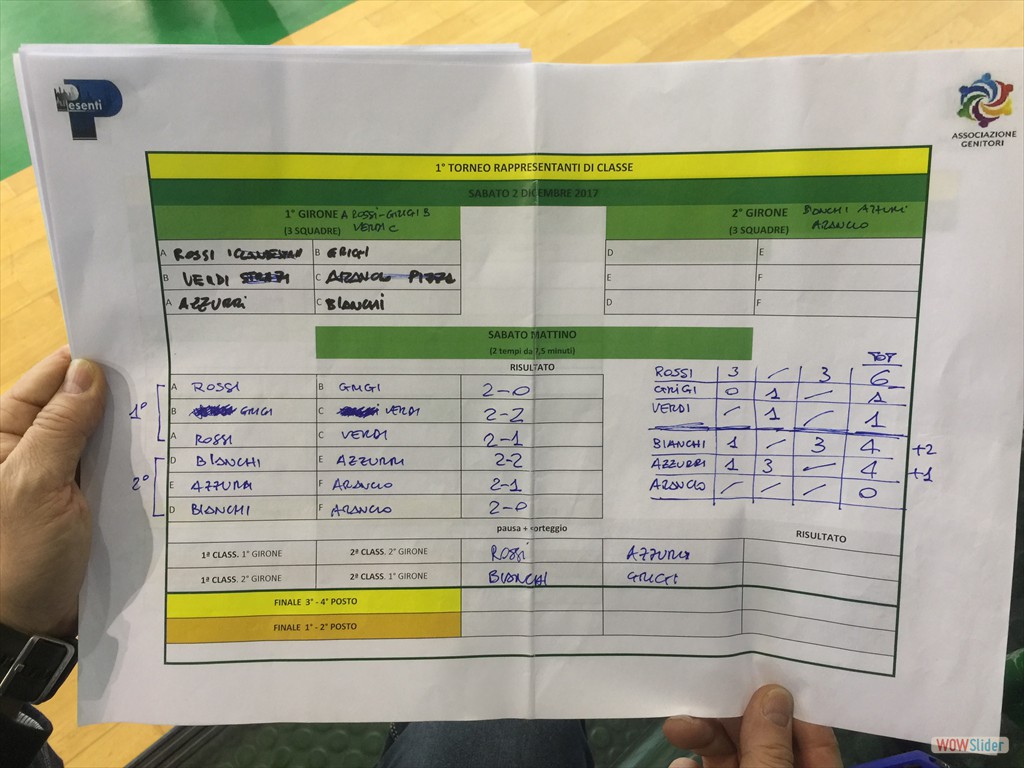 Presenti
ASSOCIAZIONE
GENITORI
1° TORNEO RAPPRESENTANTI DI CLASSE
SABATO 2 DICEMBRE 2017
1° GIRONE A ROSSI-GRIGI B
(3 SQUADRE) VERDI C
2° GIRONE BIANCHI AZZURRI
(3 SQUADRE) ARANCIO
A ROSSI B GRIGI D E
B VERDI C ARANCIO PIZZA E F
A AZZURRI C BIANCHI D F
SABATO MATTINO
(2 tempi da 7,5 minuti)
RISULTATO
TOT
A ROSSI B GRIGI 2-0
B GRIGI C VERDI 2-2
A ROSSI C VERDI 2-1
1°
D BIANCHI E AZZURRI 2-2
E AZZURRI F ARANCIO 2-1
D BIANCHI F ARANCIO 2-0
2°
ROSSI 3 / 3 6
GRIGI 0 1 / 1
VERDI / 1 / 1
BIANCHI 1 / 3 4 +2
AZZURRI 1 3 / 4 +1
ARANCIO / / / 0
pausa + sorteggio
RISULTATO
1ª CLASS. 1° GIRONE 2ª CLASS. 2° GIRONE ROSSI AZZURRI
1ª CLASS. 2° GIRONE 2ª CLASS. 1° GIRONE BIANCHI GRIGI
FINALE 3° - 4° POSTO
FINALE 1° - 2° POSTO
WOWSlider